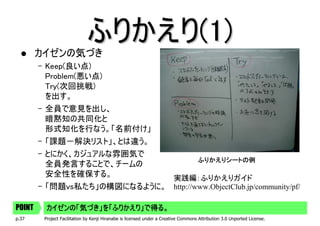 ふりかえり(1)
● カイゼンの気づき
– Keep(良い点)
Problem(悪い点)
Try(次回挑戦)
を出す。
– 全員で意見を出し、
暗黙知の共同化と
形式知化を行なう。「名前付け」
– 「課題－解決リスト」、とは違う。
– とにかく、カジュアルな雰囲気で
全員発言することで、チームの
安全性を確保する。
– 「問題vs私たち」の構図になるように。
Keep
Try
Problem
ふりかえりシートの例
実践編：ふりかえりガイド
http://www.ObjectClub.jp/community/pf/
POINT カイゼンの「気づき」を「ふりかえり」で得る。
p.37 Project Faciliation by Kenji Hiranabe is licensed under a Creative Commons Attribution 3.0 Unported License.